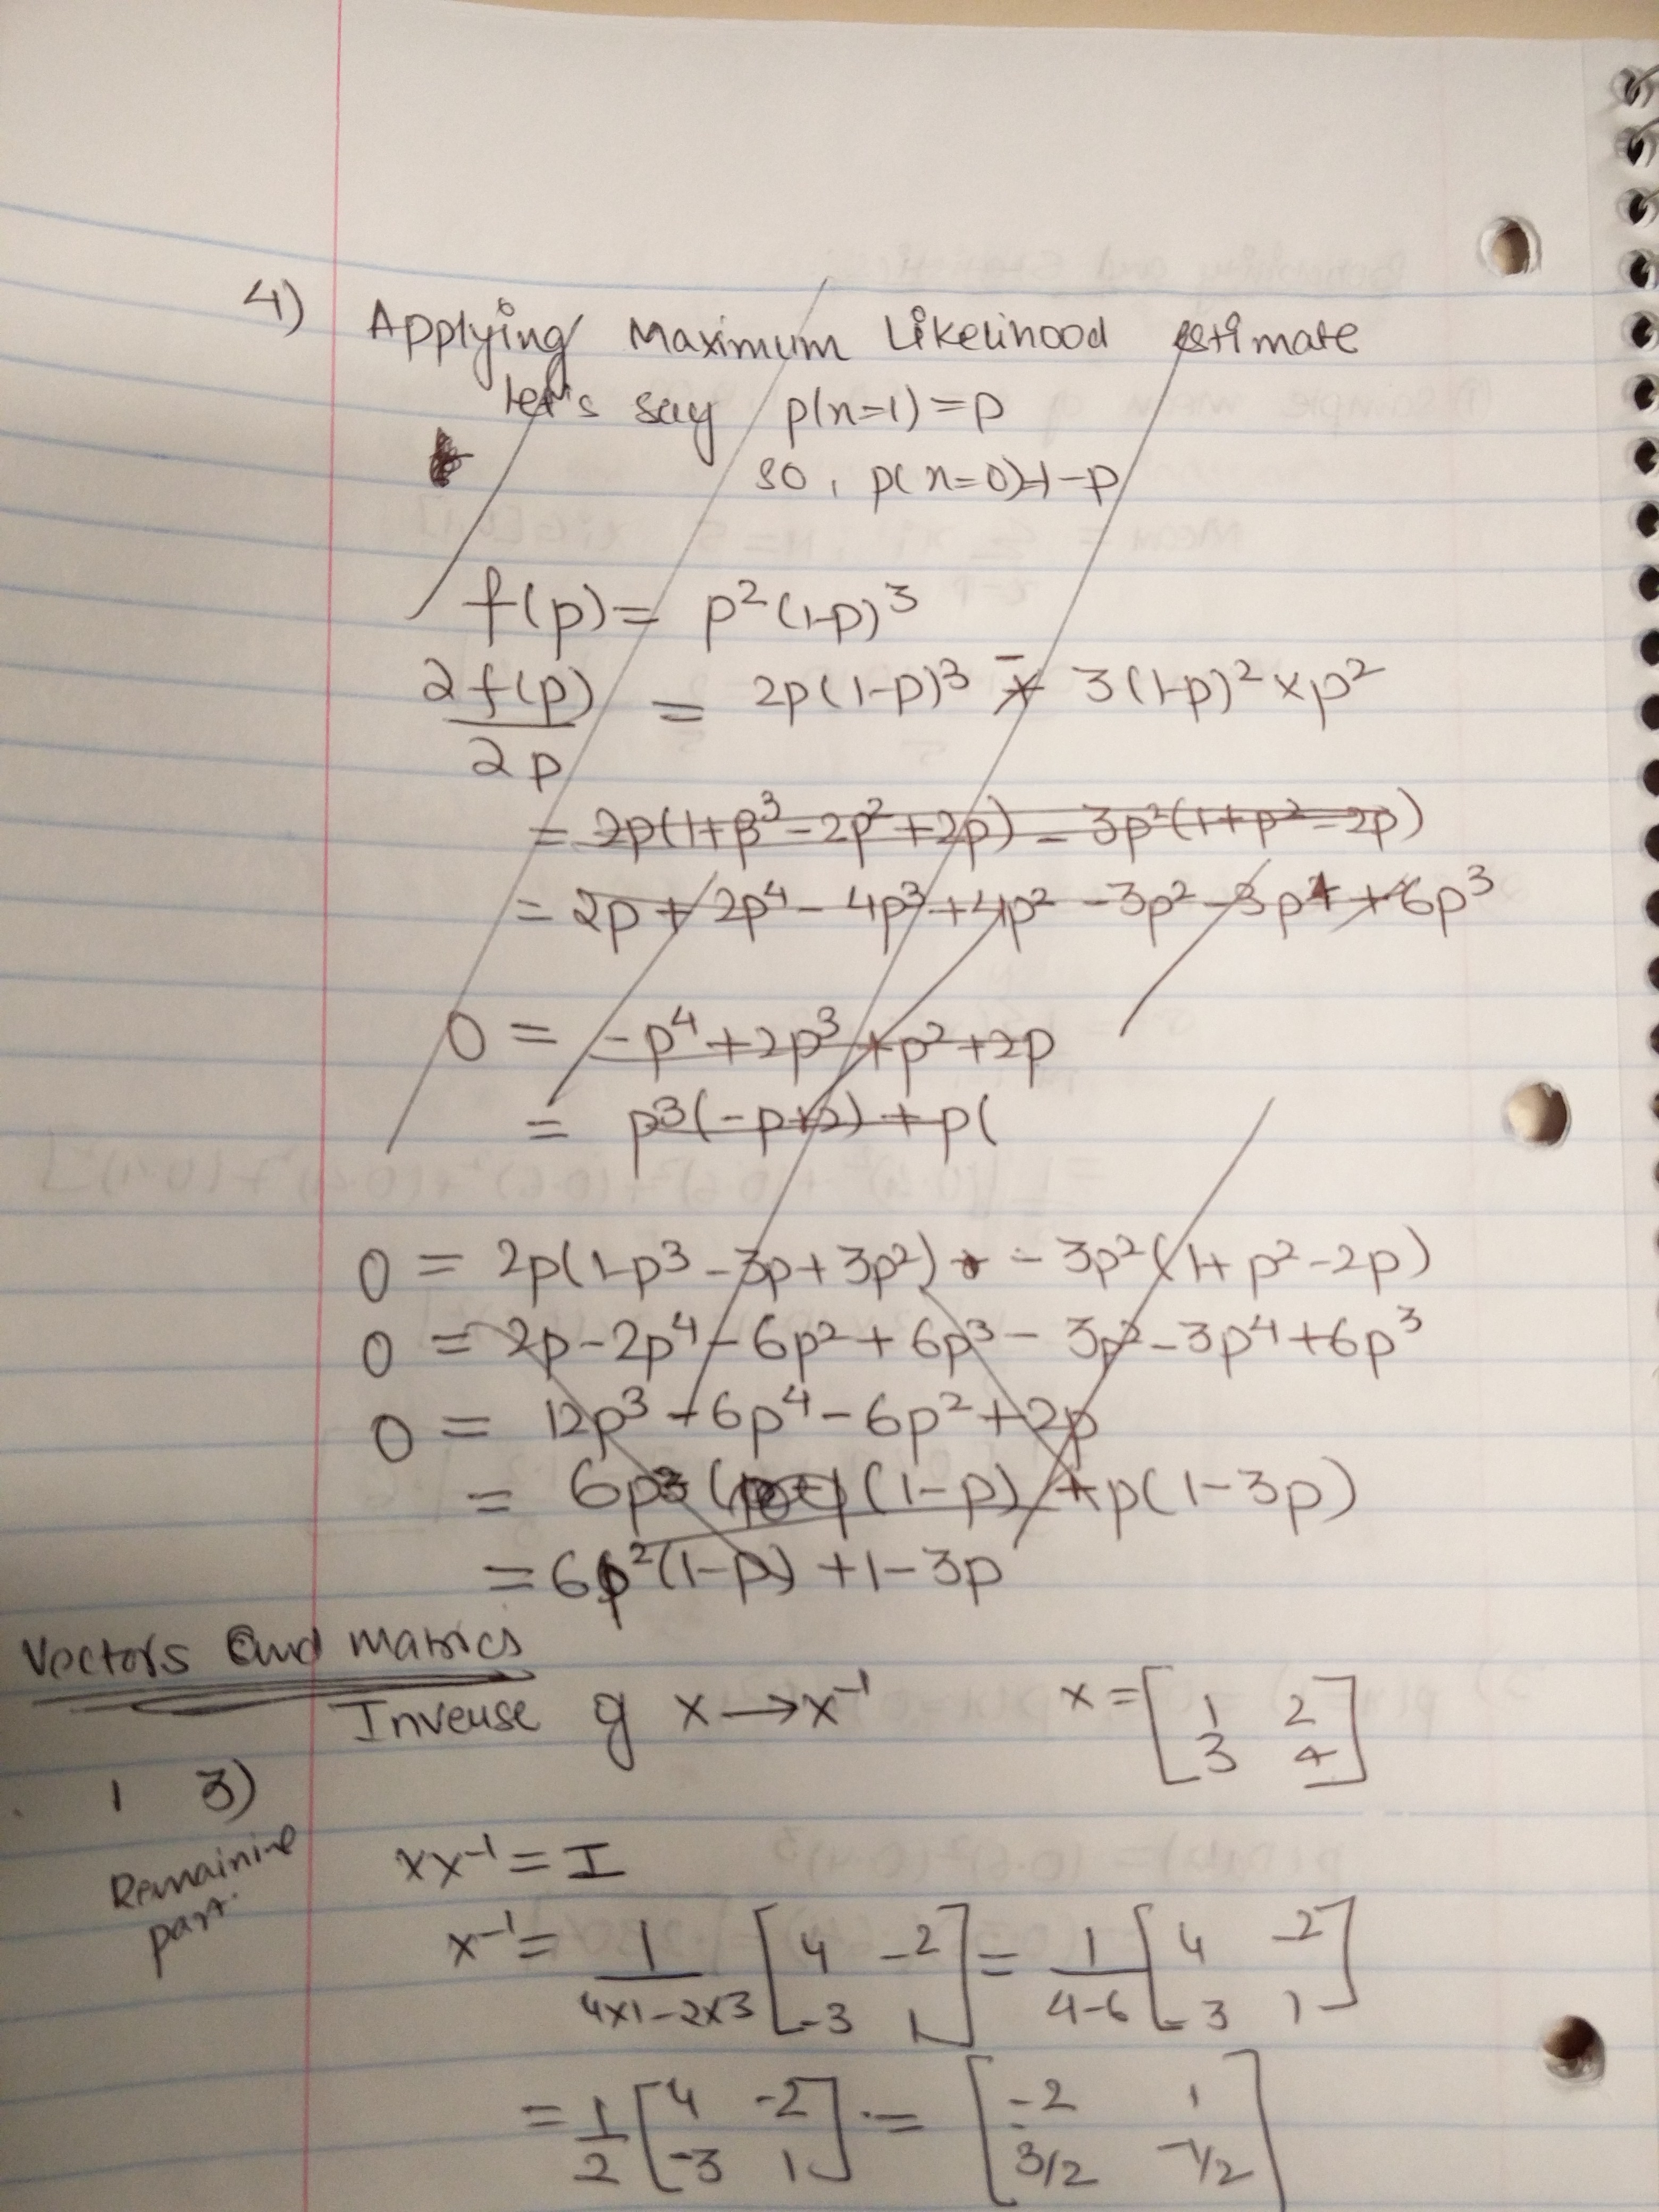 4) Applying Maximum Likelihood estimate
let's say p(n=1)=p
so, p(n=0)=1-p
f(p) = p²(1-p)³
2f(p)/2p = 2p(1-p)³ - 3(1-p)² x p²
= 2p(1+p³-2p²+2p) - 3p²(1+p²-2p)
= 2p + 2p⁴ - 4p³ + 4p² - 3p² - 3p⁴ + 6p³
0 = -p⁴ + 2p³ + p² + 2p
= p³(-p+2) + p(
0 = 2p(1-p³-3p+3p²) - 3p²(1+p²-2p)
0 = 2p-2p⁴-6p²+6p³-3p²-3p⁴+6p³
0 = 12p³-6p⁴-6p²+2p
= 6p³ (1-p) + p(1-3p)
= 6p²(1-p) + 1-3p
Vectors and matrics
Inveuse of x → x⁻¹ x = [1 2
3 4]
1 3)
Remaining part.
xx⁻¹ = I
x⁻¹ = 1/(4x1-2x3) [4 -2
-3 1] = 1/(4-6) [4 -2
-3 1]
= 1/2 [4 -2
-3 1] = [-2 1
3/2 -1/2]